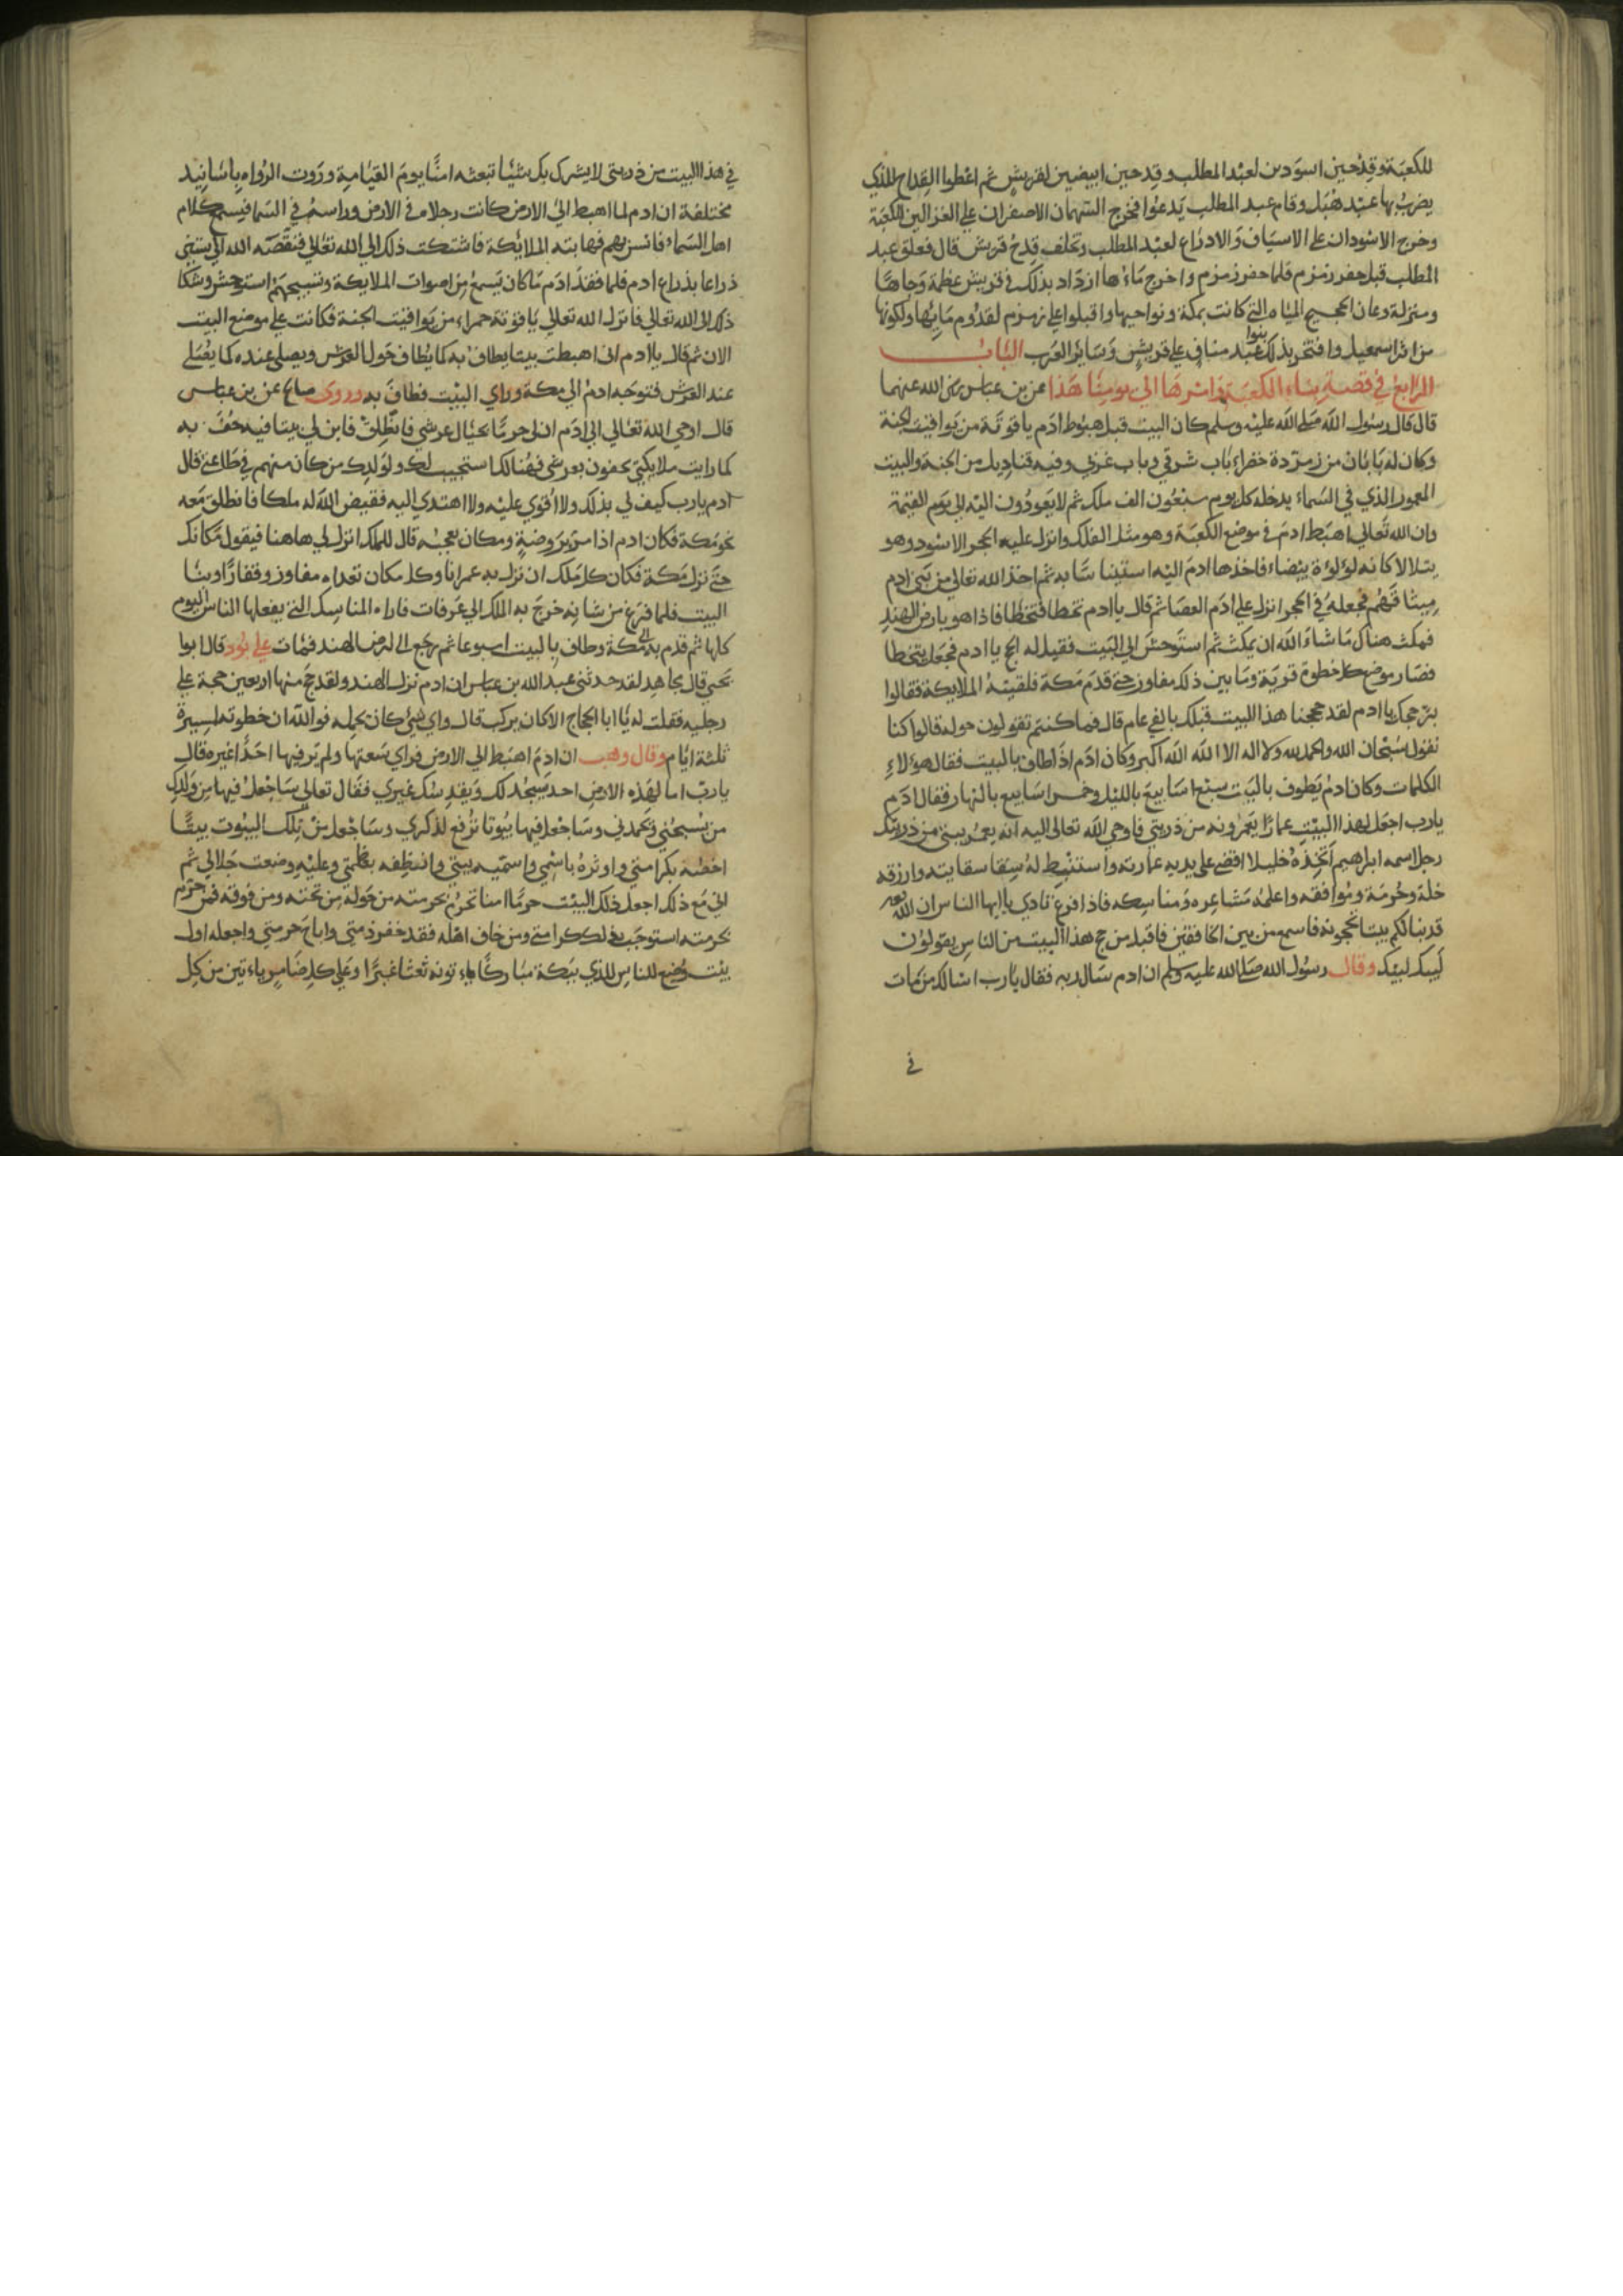 للكعبة وقدحين اسودين لعبد المطلب وقدحين ابيضين لقريش ثم اعطوا القداح للذي
يضرب بها عند هبل وقام عبد المطلب يدعوا فخرج السهمان الاصفران على الغزالين للكعبة
وخرج الاسودان على الاسياف والادراع لعبد المطلب وتخلف قدح قريش قال فعلق عبد
المطلب قبل حفر زمزم فلما حفر زمزم واخرج ماءها ازداد بذلك في قريش عظمة وجاها
ومنزلة وعان الحجيج المياه التي كانت بمكة ونواحيها واقبلوا على زمزم لقدوم مائها ولكونها
من اثر اسمعيل وافتخر بذلك بنوا عبد مناف على قريش وسائر العرب الباب
الرابع في قصة بناء الكعبة وامرها الى يومنا هذا عن بن عباس رضى الله عنهما
قال قال رسول الله صلى الله عليه وسلم كان البيت قبل هبوط ادم ياقوتة من يواقيت الجنة
وكان له بابان من زمردة خضراء باب شرقي وباب غربي وفيه قناديل من الجنة والبيت
المعمور الذي في السماء يدخله كل يوم سبعون الف ملك ثم لا يعودون اليه الى يوم القيمة
وان الله تعالى اهبط ادم في موضع الكعبة وهو مثل الفلك وانزل عليه الحجر الاسود وهو
يتلالا كانه لؤلؤة بيضاء فاخذها ادم اليه استيناسا به ثم اخذ الله تعالى من بني ادم
ميثاقهم فجعله في الحجر انزل على ادم العصا ثم قال يا ادم تخطا فتخطا فاذا هو بارض الهند
فمكث هناك ما شاء الله ان يمكث ثم استوحش الى البيت فقيل له احج يا ادم فجعل يتخطا
فصار موضع كل خطوة قرية وما بين ذلك مفاوز حتى قدم مكة فلقيته الملايكة فقالوا
بر حجك يا ادم لقد حججنا هذا البيت قبلك بالفي عام قال فما كنتم تقولون حوله قالوا كنا
نقول سبحان الله والحمد لله ولا اله الا الله الله اكبر وكان ادم اذا طاف بالبيت فقال هؤلاء
الكلمات وكان ادم يطوف بالبيت سبع اسابيع بالليل وخمس اسابيع بالنهار فقال ادم
يارب اجعل لهذا البيت عمارا يعمرونه من ذريتي فاوحى الله تعالى اليه انه يعمر بيتي من ذريتك
رجل اسمه ابراهيم اتخذه خليلا اقضي على يديه عمارته واستنبط له سقايته وارزقه
خلة وحرمة وموافقه واعلمه مشاعره ومناسكه فاذا فرغ نادى يا ايها الناس ان الله
قد بنا لكم بيتا تحجونه فاسمع من بين الخافقين فاقبل من حج هذا البيت من الناس يقولون
لبيك لبيك وقال رسول الله صلى الله عليه وسلم ان ادم سال ربه فقال يارب اسالك من مات
في
في هذا البيت من ذريتي لا يشرك بك شيئا تبعثه امنا يوم القيامة وروت الرواه باسانيد
مختلفة ان ادم لما اهبط الى الارض كانت رجلاه في الارض وراسه في السما فيسمع كلام
اهل السماء فانس بهم فهابته الملائكة فاشتكت ذلك الى الله تعالى فنقصه الله الى ستين
ذراعا بذراع ادم فلما فقد ادم ما كان يسمع من اصوات الملايكة وتسبيحهم استوحش وشكا
ذلك الى الله تعالى فانزل الله تعالى ياقوتة حمراء من يواقيت الجنة فكانت على موضع البيت
الان ثم قال يا ادم انى اهبطت بيتا يطاف به كما يطاف حول العرش ويصلى عنده كما يصلى
عند العرش فتوجه ادم الى مكة وراي البيت فطاف به وروى صالح عن بن عباس
قال اوحى الله تعالى الى ادم ان لي حرما بحيال عرشي فانطلق فابن لي بيتا فيه حف به
كما رايت ملايكتي يحفون بعرشي فهنالك استجيب لك ولولدك من كان منهم في طاعتي قال
ادم يارب كيف لي بذلك ولا اقوي عليه ولا اهتدي اليه فقيض الله له ملكا فانطلق معه
نحو مكة فكان ادم اذا مر بروضة ومكان يعجبه قال للملك انزل لي هاهنا فيقول مكانك
حتى نزل مكة فكان كل ملك ان نزل به عمرانا وكل مكان تعداه مفاوز وقفارا وبنا
البيت فلما فرغ من شانه خرج به الملك الى عرفات فاراه المناسك التي يفعلها الناس اليوم
كلها ثم قدم به الى مكة وطاف بالبيت اسبوعا ثم رجع الى ارض الهند فمات على نود قال ابو ا
يحيى قال مجاهد لقد حدثني عبد الله بن عباس ان ادم نزل الهند ولقد حج منها اربعين حجة على
رجليه فقلت له يا ابا الحجاج الا كان يركب قال واي شئ كان يحمله فوالله ان خطوته لمسيرة
ثلثة ايام وقال وهب ان ادم اهبط الى الارض فراي سعتها ولم ير فيها احدا غيره قال
يارب اما لهذه الارض احد يسبحد لك ويقدسك غيري فقال تعالى ساجعل فيها من ولدك
من يسبحني ويحمدني وساجعل فيها بيوتا ترفع لذكري وساجعل من تلك البيوت بيتا
اخصه بكرامتي واوثره باسمي واسميه بيتي وانطقه بعظمتي وعليه وضعت جلالي ثم
اني مع ذلك اجعل ذلك البيت حرما امنا تحرم بحرمته من حوله من تحته ومن فوقه فمن حرم
بحرمته استوجب بذلك كرامتي ومن خاف اهله فقد خفر ذمتي واباح حرمتي واجعله اول
بيت وضع للناس للذي ببكة مباركا ياءتونه شعثا غبرا وعلى كل ضامر ياءتين من كل